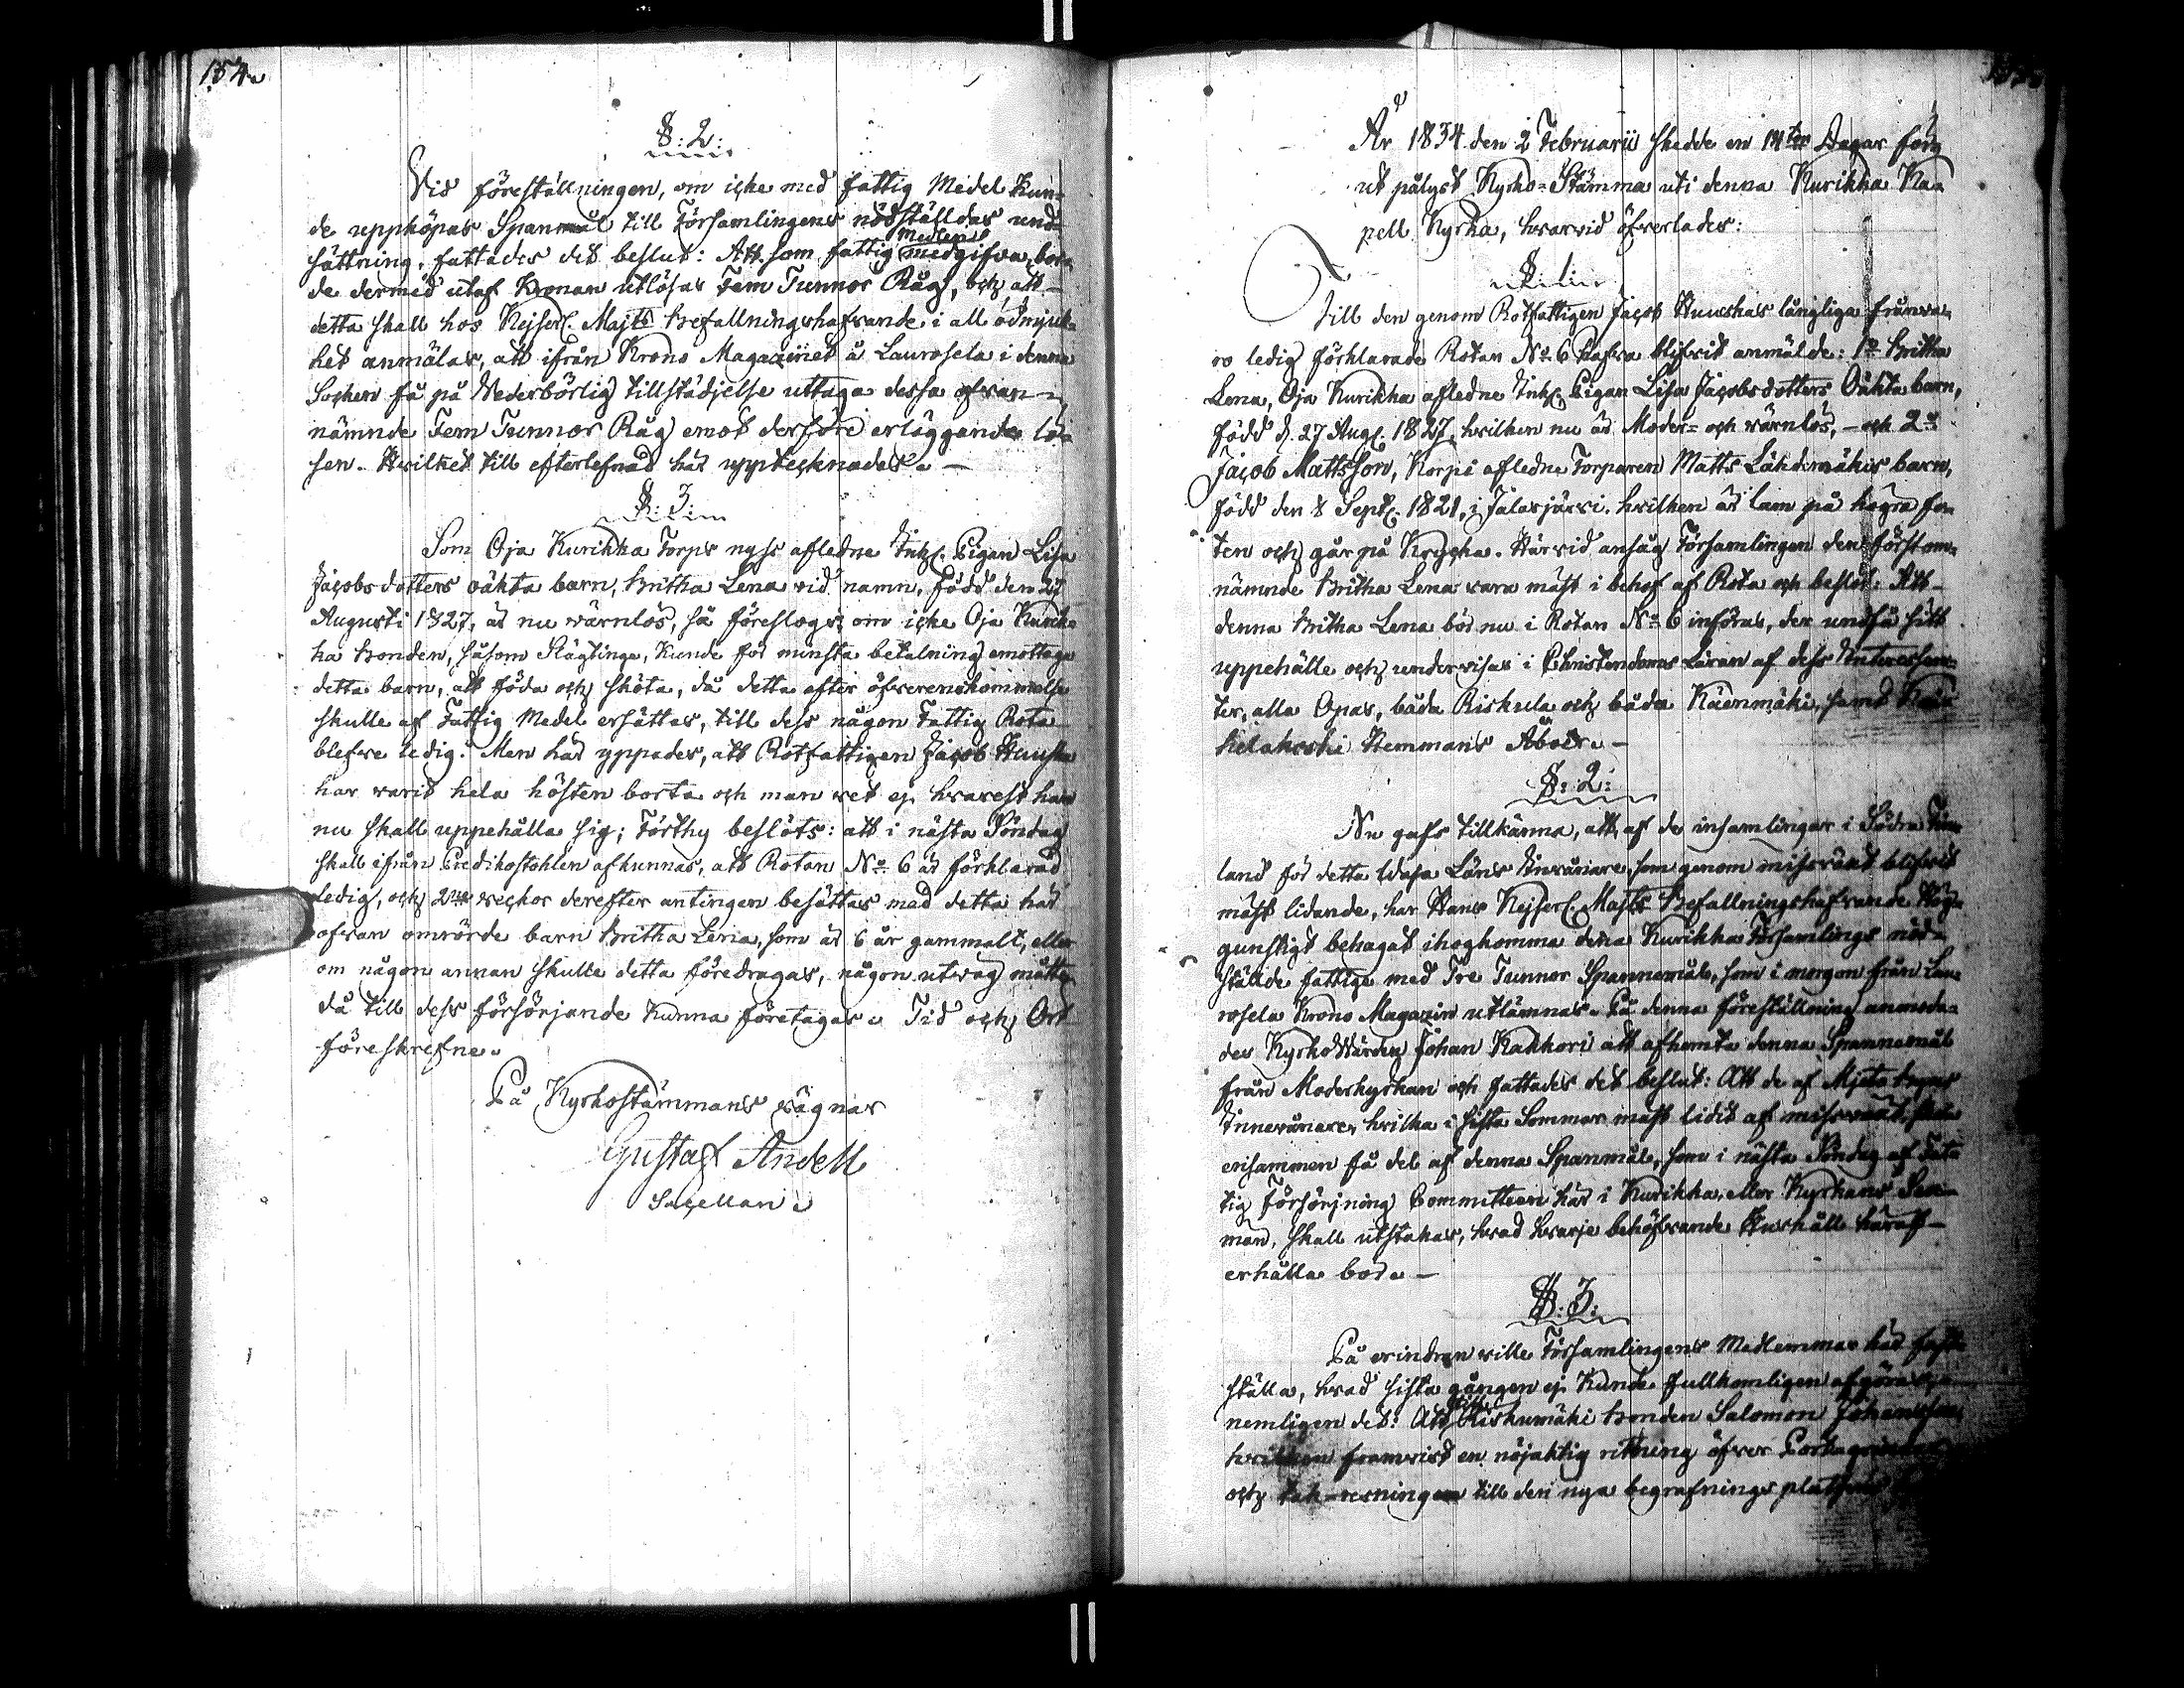 154.
§: 2:
Vid föreställningen, om icke med fattig Medel Kun-
de uppköpas Spanmål till Församlingens nödställdas und-
sättning, fattades det beslut: Att som fattig Medlen medgifva, bor-
de dermed utaf Kronan utlösas Fem Tunnor Råg, och att
detta skall hos Kejserl. Majts Befallningshafvande i all ödmjuk-
het anmälas, att ifrån Krono Magazinet å Laurosela i denna
Sochen få på Vederbörlig tillstädjelse uttaga dessa ofvan-
nämnde Fem Tunnor Råg emot derföre erläggande lö-
sen. Hvilket till efterlefnad här upptecknades. —
§: 3:
Som Oja Kurikka Torps nyss afledne Inh. Pigan Lisa
Jacobsdotters oäkta barn, Britha Lena vid namn, född den 27
Augusti 1827, är nu wärnlös, så föreslogs: om icke Oja Kurik-
ka bonden, såsom Slägtinge, kunde för minsta betalning emottaga
detta barn, att föda och sköta, då detta efter öfverenskommelse
skulle af Fattig Medel ersättas, till dess någon Fattig Rota
blefve ledig. Men här yppades, att Rotfattigen Jacob Huuska
har varit hela hösten borta och man vet ej hvarest han
nu skall uppehålla sig; Förthy beslöts: att i nästa Söndag
skall ifrån Predikostohlen afkunnas, att Rotan No 6 är förklarad
ledig, och 2ne veckor derefter antingen besättas med detta här
ofvan omrörde barn Britha Lena, som är 6 år gammalt, eller
om någon annan skulle detta föredragas, någon utväg måtte
då till dess försörjande kunna företagas. Tid och Ort
föreskrefne.
På Kyrkostämmans vägnar
Gustaf Andell
Sacellan
År 1834 den 2 Februarii skedde en 14ton Dagar för-
ut pålyst Kyrko-Stämma uti denna Kurikka Ka-
pell Kyrka, hvarvid öfverlades:
§. 1:
Till den genom Rotfattigen Jacob Huuskas långliga frånva-
ro ledig förklarade Rotan No 6 hafva blifvit anmälde: 1o Britha
Lena, Oja Kurikka afledne Inh. Pigan Lisa Jacobsdotters Oäkta barn,
född d. 27 Aug. 1827, hvilken nu är Moder- och wärnlös, — och 2o
Jacob Mattsson, Korpi afledne Torparen Matts Lähdemäkis barn,
född den 8 Sept. 1821, i Jalasjärvi, hvilken är lam på högra fo-
ten och går på Krycka. Härvid ansåg Församlingen den förstom-
nämnde Britha Lena vara mäst i behof af Rota och beslöt: Att
denna Britha Lena bör nu i Rotan No 6 införas, der undfå sitt
uppehälle och undervisas i Christendoms Läran af dess Interessen-
ter, alla Opas, båda Riskula och båda Käenmäki, samt
Hemmans Åboer. —
§: 2:
Nu gafs tillkänna, att af de insamlingar i Södra Fin-
land för detta Wasa Läns Invånare, som genom missväxt blifvit
mäst lidande, har Hans Kejserl. Majts Befallningshafvande Hög-
gunstigt behagat ihogkomma detta Kurikka Församlings nöd-
ställde fattige med Tre Tunnor Spannemål, som i morgon från Lau-
rosela Krono Magazin utlämnas. På denna föreställning anmoda-
des Kyrko Wärden Johan Kakkori att afhemta denna Spannemål
från Moderkyrkan och fattades det beslut: Att de af Mjeto byns
Innevånare, hvilka i sista Sommar mäst lidit af missväxt, skola
ensammen få del af denna Spanmål, som i nästa Söndag af Fat-
tig Försörjning Committeen här i Kurikka, eller Kyrkans Sex-
män, skall utstakas, hvad hvarje behöfvande Hushåll häraf
erhålla bör. —
§: 3:
På erindran ville Församlingens Medlemmar här fast-
ställa, hvad sista gången ej kunde fullkomligen afgöras,
nemligen det: Att Riskumäki bonden Salomon Johansson,
hvilken framvist en nöjaktig ritning öfver
och tak-resningen till den nya begrafnings platsen